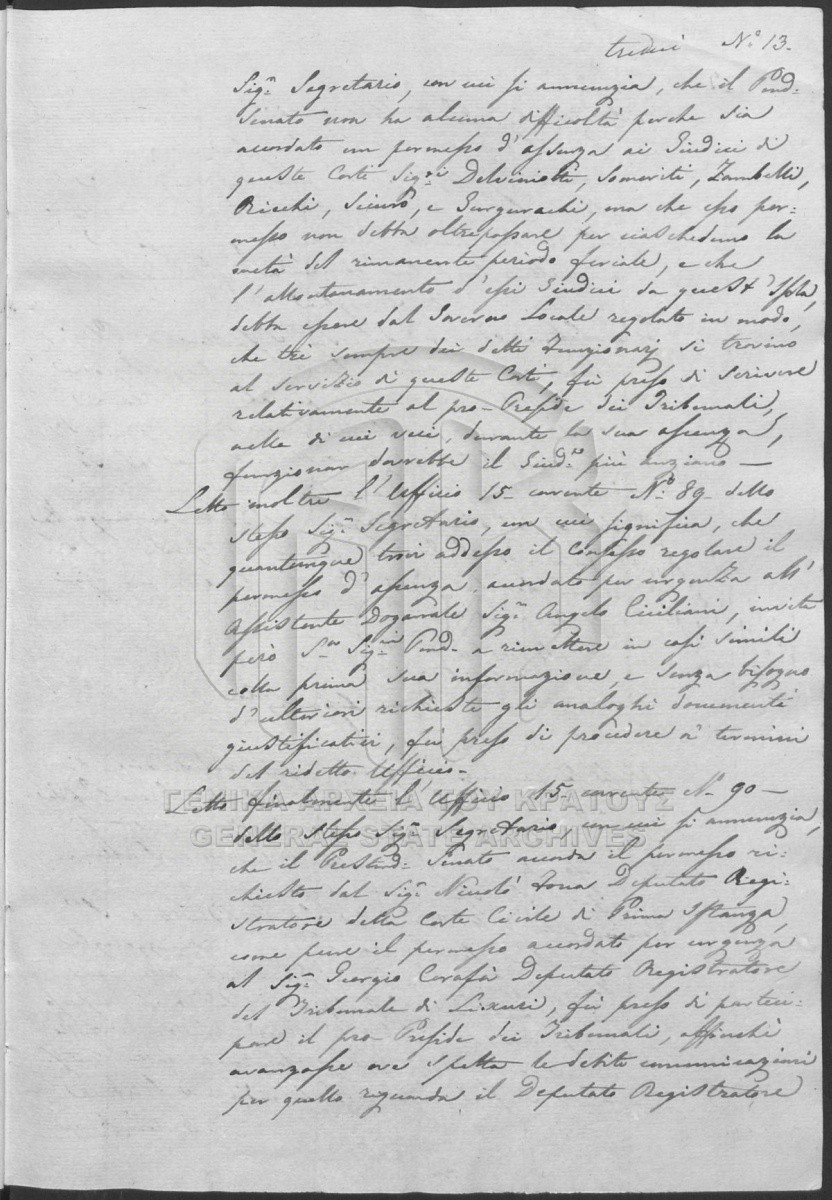 tredici N.º 13.
Sig.r Segretario, con cui si annunzia, che il Prend.
Senato non ha alcuna difficoltà perche sia
accordato un permesso d'assenza ai Giudici di
queste Corti Sig.ri Delviniotti, Someriti, Zambelli,
Ricchi, Sicuro, e Gurgurachi, ma che esso per=
messo non debba oltrepassare per ciascheduno la
metà del rimanente periodo feriale, e che
l'allontanamento d'essi Giudici da quest'Isola,
debba essere dal Governo Locale regolato in modo,
che trè sempre dei detti Funzionarj si trovino
al servizio di queste Corti, fù preso di scrivere
relativamente al pro-Preside dei Tribunali,
nelle di cui veci, durante la sua assenza,
funzionar dovrebbe il Giud.e più anziano —
Letto inoltre l'Ufficio 15 corrente N.º 89 dello
stesso Sig.r Segretario, con cui significa, che
quantunque trovi addesso il Consesso regolare il
permesso d'assenza accordato per urgenza all'
Assistente Doganale Sig.r Angelo Ciciliani, invita
però Sig.ria Prend. a rimettere in casi simili
colla prima sua informazione, e senza bisogno
d'ulteriori richieste gli analoghi documenti
giustificativi, fù preso di procedere a' termini
del ridetto Ufficio.
ΓΕΝΙΚΑ ΑΡΧΕΙΑ ΤΟΥ ΚΡΑΤΟΥΣ
GENERAL STATE ARCHIVES
Letto finalmente l'Ufficio 15 corrente N.º 90 —
dello stesso Sig.r Segretario con cui si annunzia,
che il Prestd. Senato accorda il permesso ri=
chiesto dal Sig.r Nicolò Deputato Regi=
stratore della Corte Civile di Prima Istanza,
come pure il permesso accordato per urgenza
al Sig.r Giorgio Corafà Deputato Registratore
del Tribunale di Lixuri, fù preso di parteci=
pare il pro-Preside dei Tribunali, affinchè
avanzasse ove spetta le debite comunicazioni
per quello riguarda il Deputato Registratore